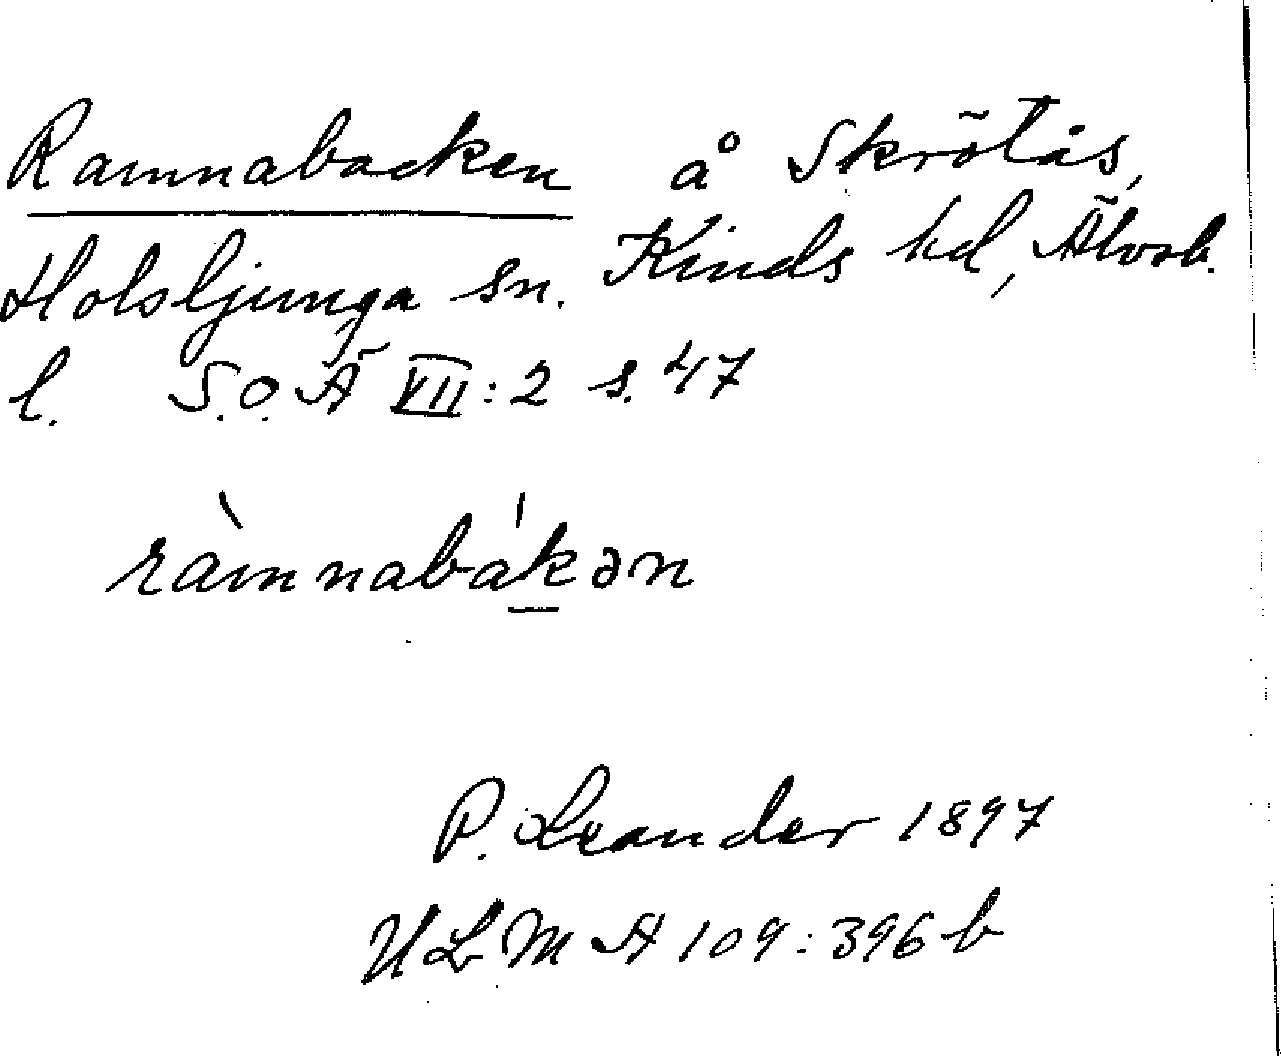 Ramnabacken å Skrötås,
Holsljunga sn. Kinds hd, Älvsb.
l. S.O.Ä VII:2 s. 47
ràmnabákən
P. Leander 1897
ULMA 109:396 b